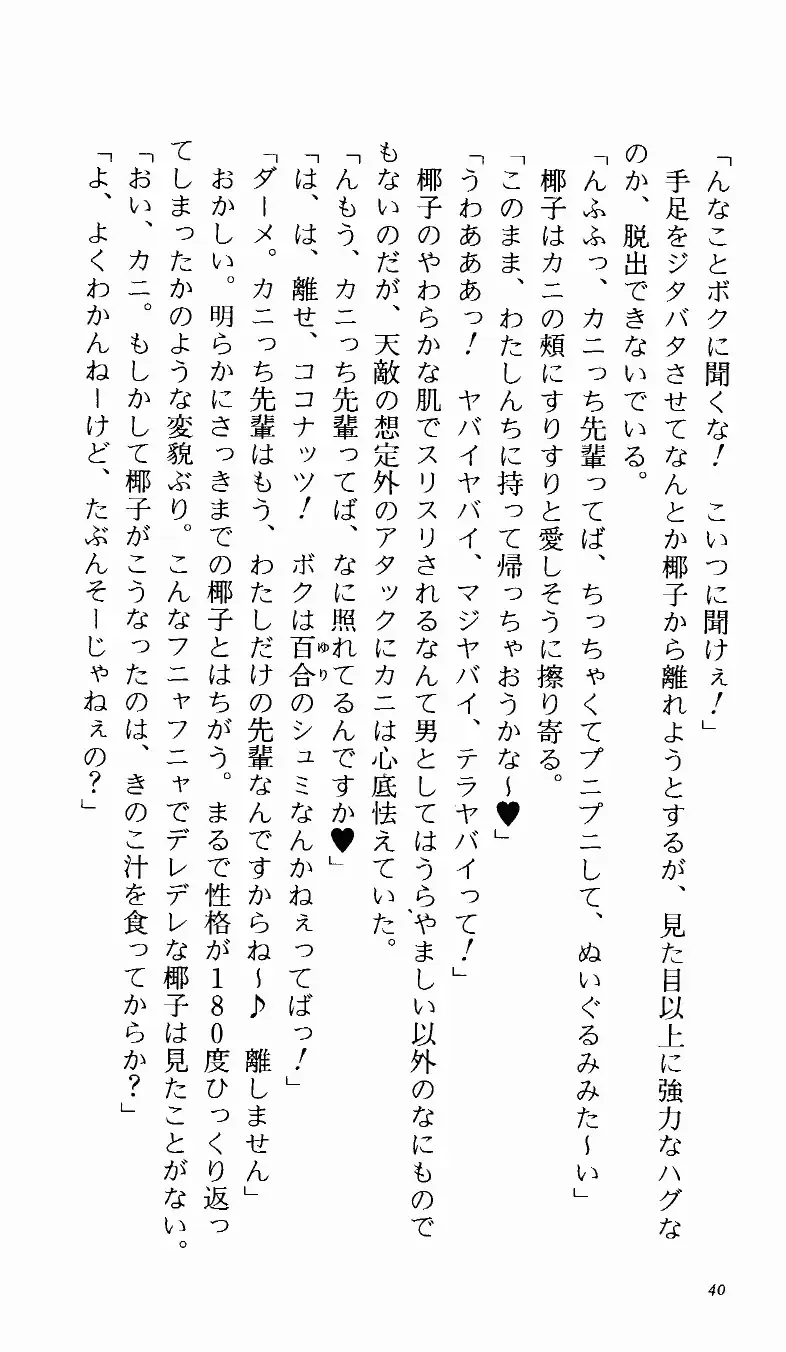 「んなことボクに聞くな！　こいつに聞けぇ！」
　手足をジタバタさせてなんとか椰子から離れようとするが、見た目以上に強力なハグな
のか、脱出できないでいる。
「んふふっ、カニっち先輩ってば、ちっちゃくてプニプニして、ぬいぐるみみた～い」
　椰子はカニの頰にすりすりと愛しそうに擦り寄る。
「このまま、わたしんちに持って帰っちゃおうかな～♥」
「うわあああっ！　ヤバイヤバイ、マジヤバイ、テラヤバイって！」
　椰子のやわらかな肌でスリスリされるなんて男としてはうらやましい以外のなにもので
もないのだが、天敵の想定外のアタックにカニは心底怯えていた。
「んもう、カニっち先輩ってば、なに照れてるんですか♥」
「は、は、離せ、ココナッツ！　ボクは百合のシュミなんかねぇってばっ！」
ゆり
「ダーメ。カニっち先輩はもう、わたしだけの先輩なんですからね～♪　離しません」
　おかしい。明らかにさっきまでの椰子とはちがう。まるで性格が１８０度ひっくり返っ
てしまったかのような変貌ぶり。こんなフニャフニャでデレデレな椰子は見たことがない。
「おい、カニ。もしかして椰子がこうなったのは、きのこ汁を食ってからか？」
「よ、よくわかんねーけど、たぶんそーじゃねぇの？」
40